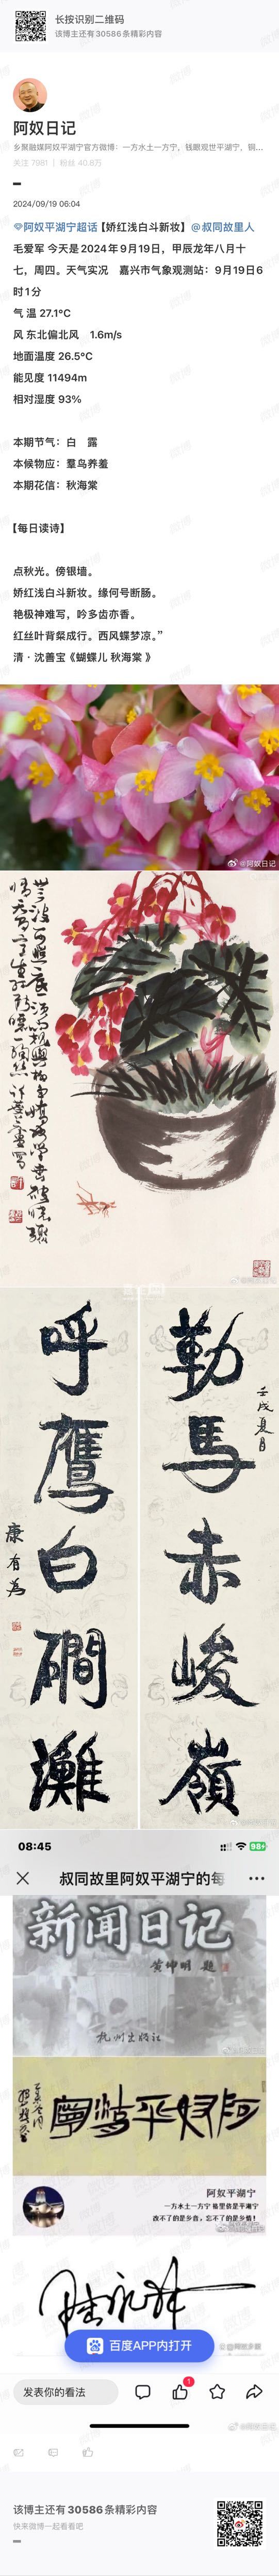 长按识别二维码
该博主还有30586条精彩内容
阿奴日记
乡聚融媒阿奴平湖宁官方微博：一方水土一方宁，钱眼观世平湖宁，铜...
关注 7981 | 粉丝 40.8万
2024/09/19 06:04
阿奴平湖宁超话【娇红浅白斗新妆】@叔同故里人
毛爱军 今天是2024年9月19日，甲辰龙年八月十
七，周四。天气实况 嘉兴市气象观测站：9月19日6
时1分
气 温 27.1°C
风 东北偏北风 1.6m/s
地面温度 26.5°C
能见度 11494m
相对湿度 93%
本期节气：白 露
本候物应：羣鸟养羞
本期花信：秋海棠
【每日读诗】
点秋光。傍银墙。
娇红浅白斗新妆。缘何号断肠。
艳极神难写，吟多齿亦香。
红丝叶背粲成行。西风蝶梦凉。”
清·沈善宝《蝴蝶儿 秋海棠 》
@阿奴日记
勒馬赤峻嶺
壬戌夏月
呼鷹白磵灘
康有為
08:45
98+
叔同故里阿奴平湖宁的每
新闻日记
黄坤明 题
杭州出版社
阿奴平湖宁
阿奴平湖宁
一方水土一方宁 格里倷是平湖宁
改不了的是乡音，忘不了的是乡情！
百度APP内打开
发表你的看法
1
该博主还有30586条精彩内容
快来微博一起看看吧